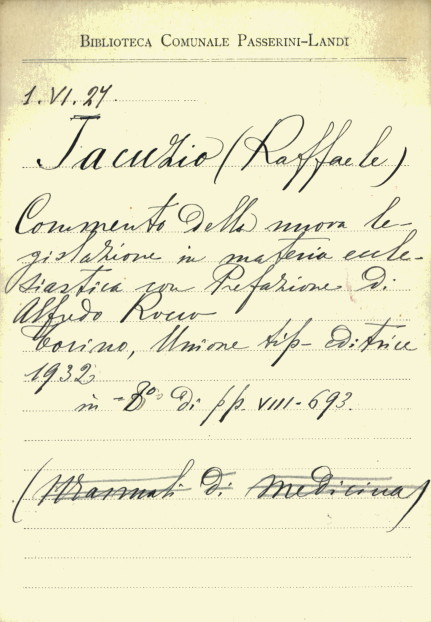 BIBLIOTECA COMUNALE PASSERINI-LANDI
1.VI.27.
Jacuzio (Raffaele)
Commento della nuova le-
gislazione in materia eccle-
siastica con Prefazione di
Alfredo Rocco
Torino, Unione tip- editrice
1932
in -8º di pp. VIII-693.
(Manuali di Medicina)